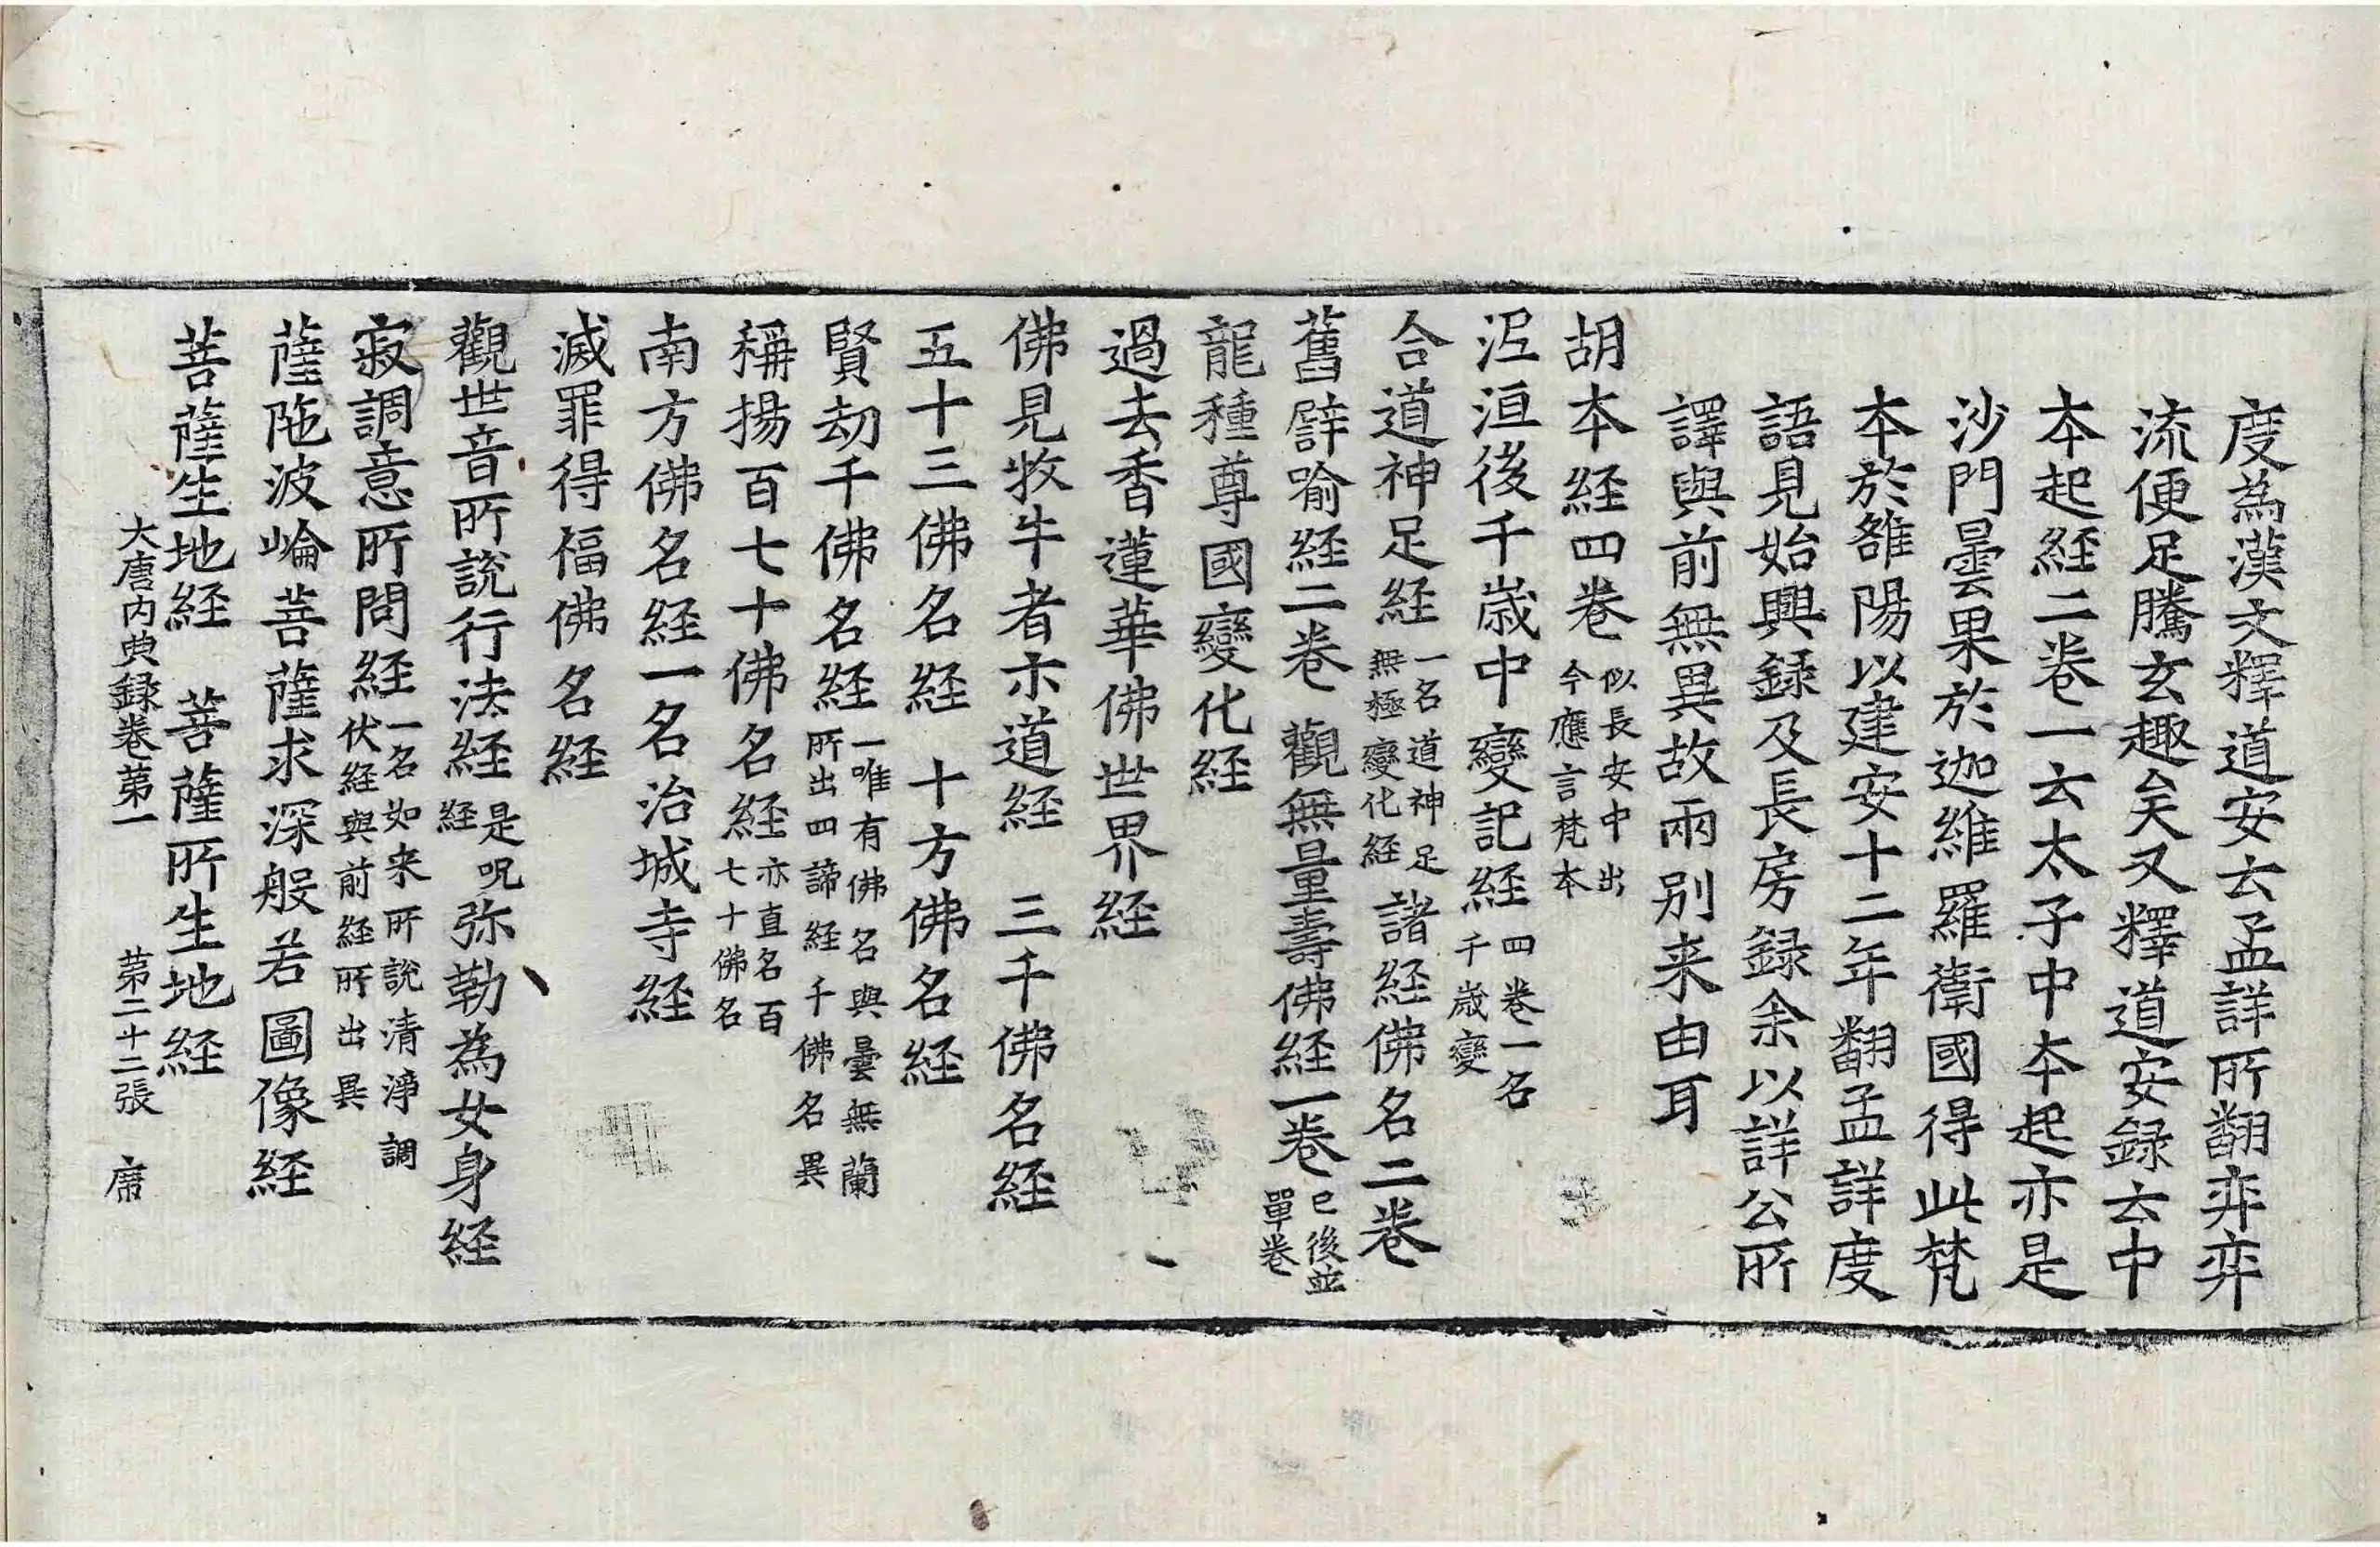 度為漢文釋道安云孟詳所翻弈弈
流便足騰玄趣矣又釋道安録云中
本起経二卷一云太子中本起亦是
沙門曇果於迦維羅衛國得此梵
本於雒陽以建安十二年翻孟詳度
語見始興録及長房録余以詳公所
譯與前無異故兩別来由耳
胡本経四卷似長安中出今應言梵本
泥洹後千歲中變記経四卷一名千歲變
合道神足経一名道神足無極變化経諸経佛名二卷
舊譬喻経二卷 觀無量壽佛経一卷已後並單卷
龍種尊國變化経
過去香蓮華佛世界経
佛見牧牛者示道経 三千佛名経
五十三佛名経 十方佛名経
賢劫千佛名経一唯有佛名與曇無蘭所出四諦経千佛名異
稱揚百七十佛名経亦直名百七十佛名
南方佛名経一名治城寺経
滅罪得福佛名経
觀世音所說行法経是呪経弥勒為女身経
寂調意所問経一名如来所說清淨調伏経與前経所出異
薩陁波崘菩薩求深般若圖像経
菩薩生地経 菩薩所生地経
大唐内典録卷第一 第二十二張 席